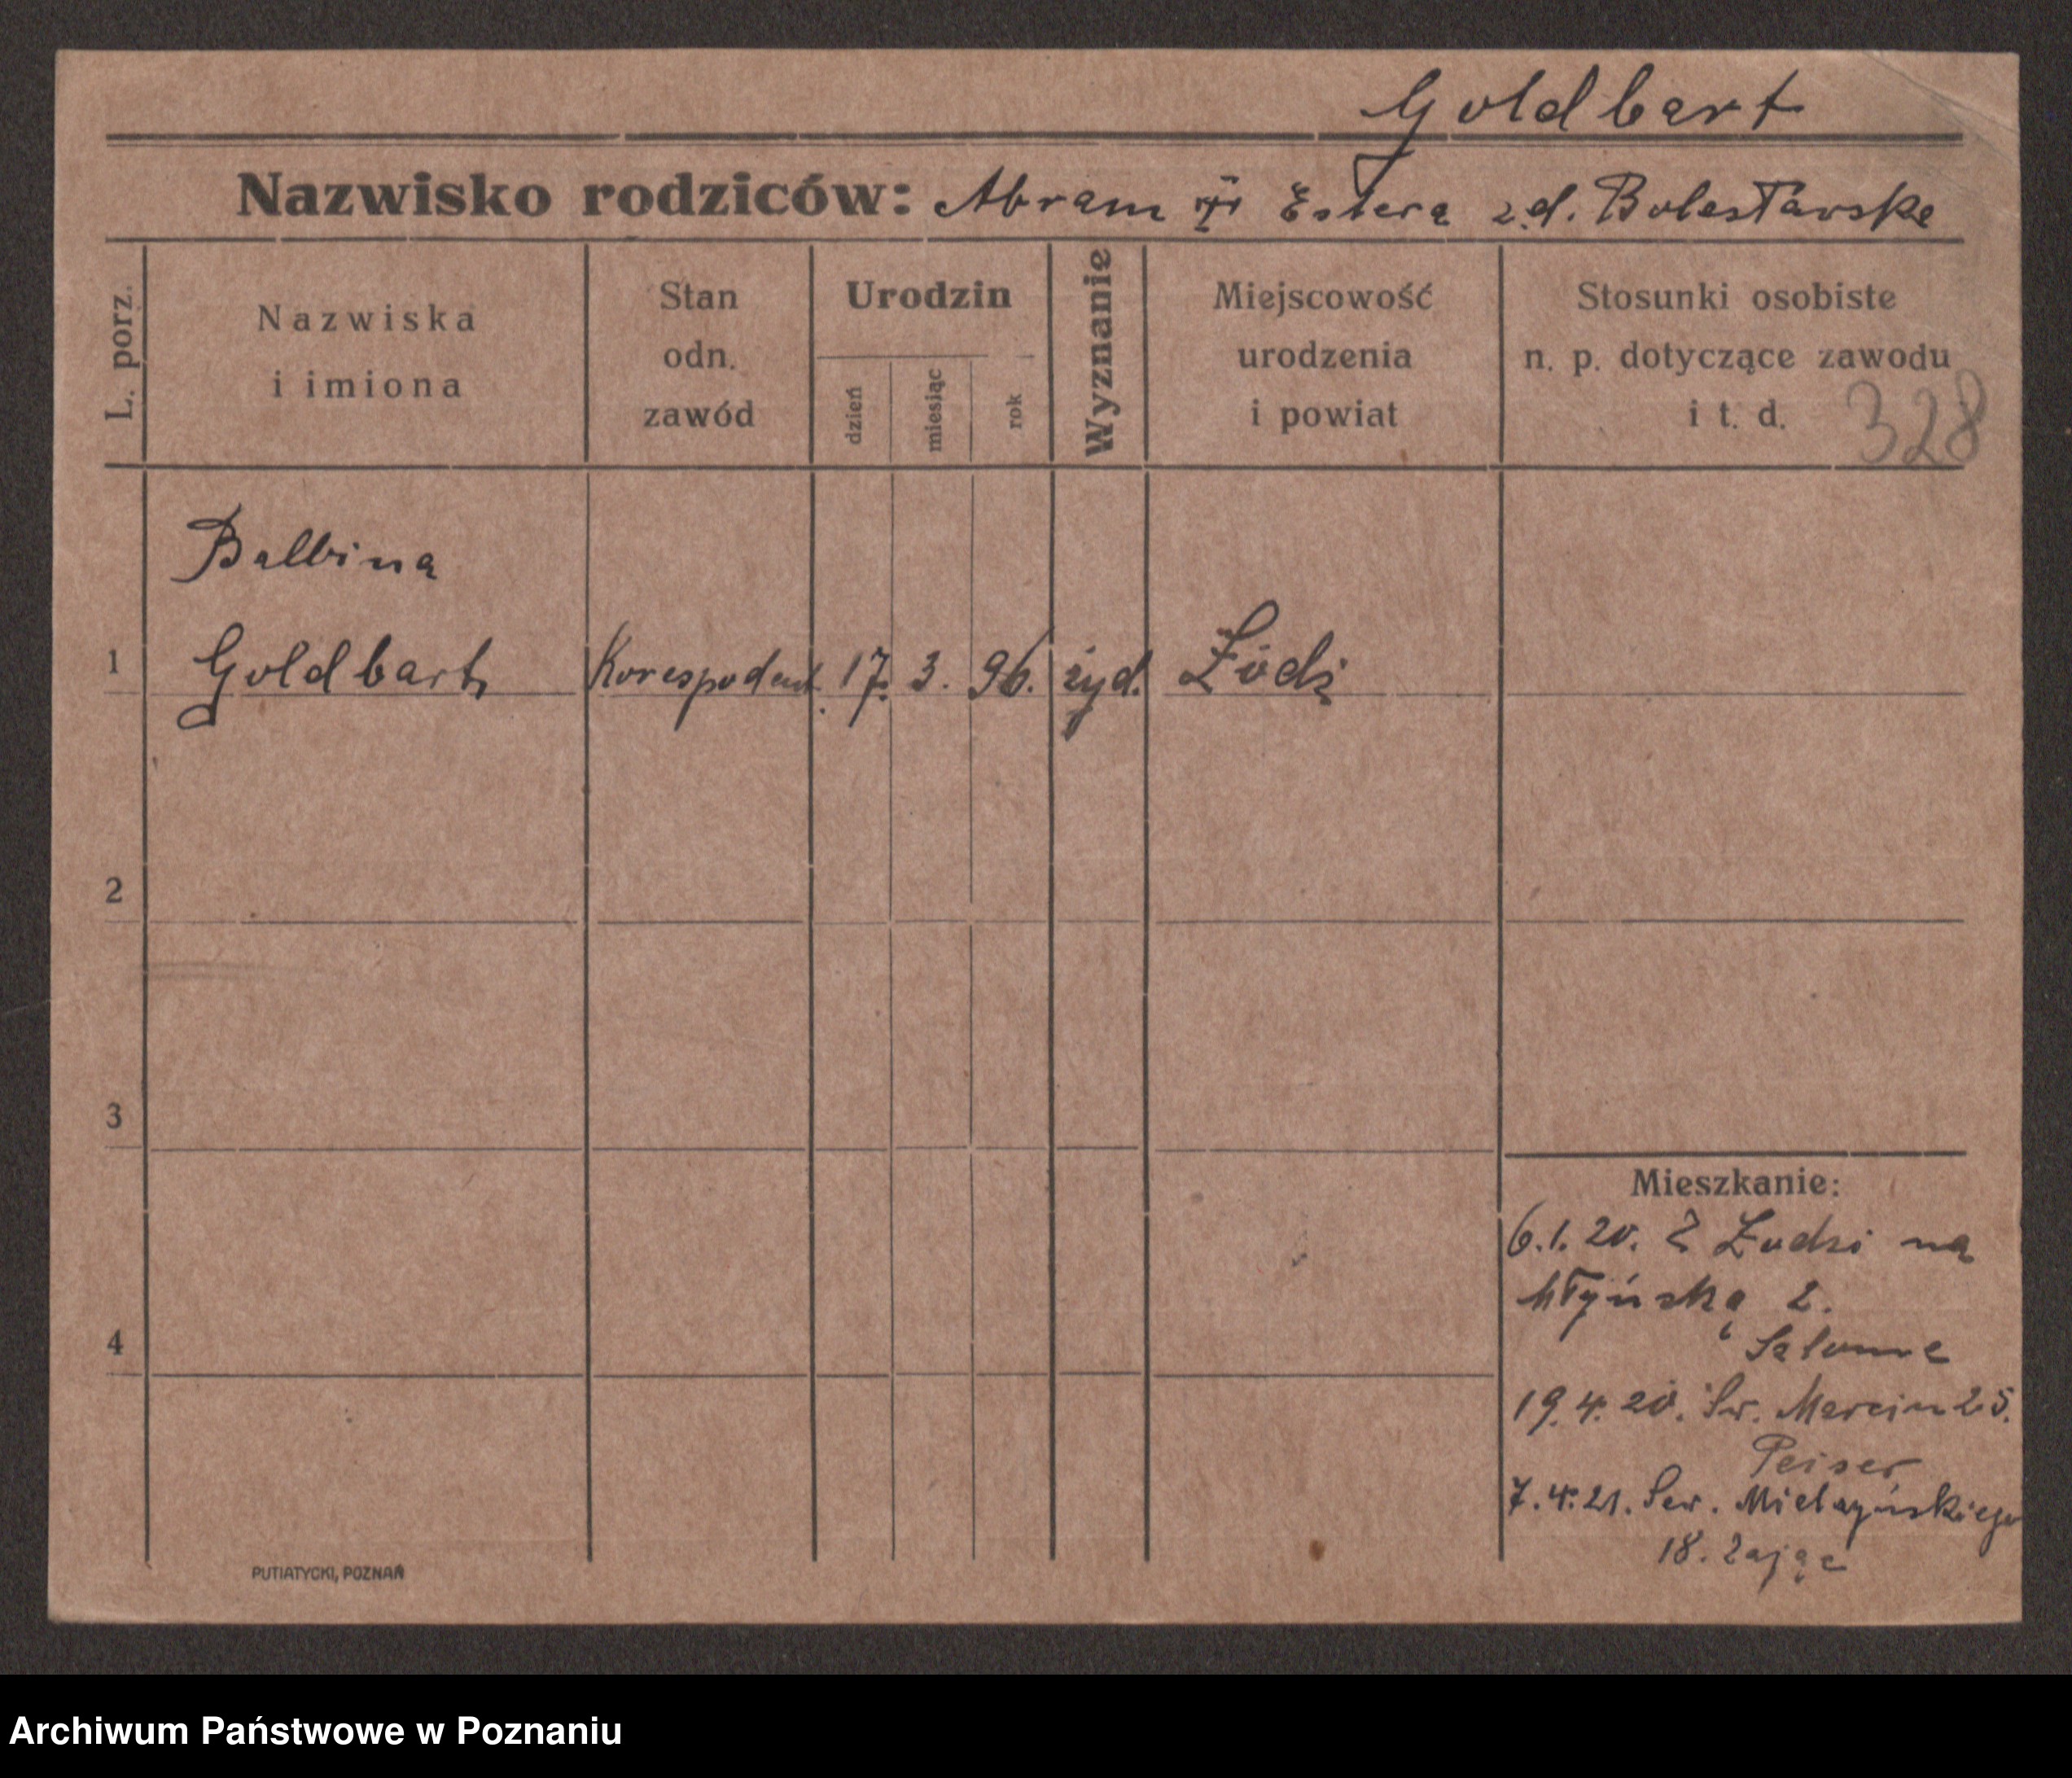 Goldbart
Nazwisko rodziców: Abram Estera z d. Bolesławska
L. porz.
Nazwiska
i imiona
Stan
odn.
zawód
Urodzin
dzień
miesiąc
rok
Wyznanie
Miejscowość
urodzenia
i powiat
Stosunki osobiste
n. p. dotyczące zawodu
i t. d.
328
Balbina
1 Goldbart Korespodent. 17. 3. 96. żyd. Łódź
2
3
4
Mieszkanie:
6.1.20. Z Łodzi na
Młyńską 2.
Salome
19.4.20. Św. Marcin 25.
Peiser
7.4.21. Sew. Mielżyńskiego
18. Zając
PUTIATYCKI, POZNAŃ
Archiwum Państwowe w Poznaniu